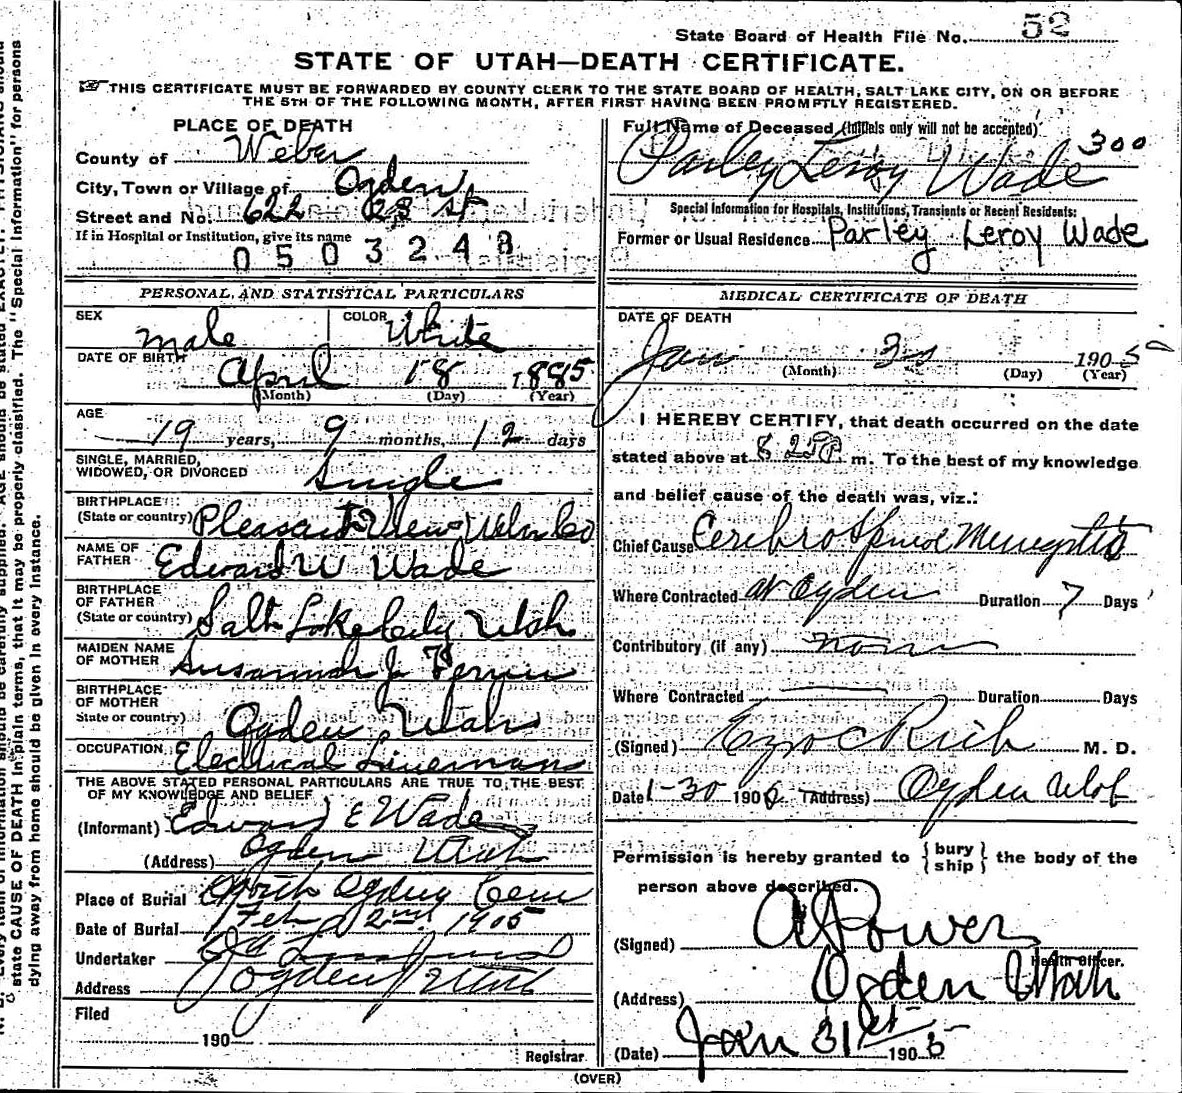 State Board of Health File No. 52
STATE OF UTAH—DEATH CERTIFICATE.
THIS CERTIFICATE MUST BE FORWARDED BY COUNTY CLERK TO THE STATE BOARD OF HEALTH, SALT LAKE CITY, ON OR BEFORE
THE 5TH OF THE FOLLOWING MONTH, AFTER FIRST HAVING BEEN PROMPTLY REGISTERED.
PLACE OF DEATH
County of Weber
City, Town or Village of Ogden
Street and No. 622 23 St
If in Hospital or Institution, give its name
0503248
PERSONAL AND STATISTICAL PARTICULARS
SEX male COLOR White
DATE OF BIRTH
April 18 1885
(Month) (Day) (Year)
AGE
19 years, 9 months, 12 days
SINGLE, MARRIED,
WIDOWED, OR DIVORCED Single
BIRTHPLACE
(State or country) Pleasant View Weber Co
NAME OF
FATHER Edward W Wade
BIRTHPLACE
OF FATHER
(State or country) Salt Lake City Utah
MAIDEN NAME
OF MOTHER Susannah J
BIRTHPLACE
OF MOTHER
State or country) Ogden Utah
OCCUPATION Electrical Lineman
THE ABOVE STATED PERSONAL PARTICULARS ARE TRUE TO THE BEST
OF MY KNOWLEDGE AND BELIEF
(Informant) Edward E Wade
(Address) Ogden Utah
Place of Burial North Ogden Cem
Date of Burial Feb 2nd 1905
Undertaker
Address Ogden Utah
Filed
190
Registrar
Full Name of Deceased (Initials only will not be accepted)
300
Parley Leroy Wade
Special Information for Hospitals, Institutions, Transients or Recent Residents:
Former or Usual Residence Parley Leroy Wade
MEDICAL CERTIFICATE OF DEATH
DATE OF DEATH
Jan 30 1905
(Month) (Day) (Year)
I HEREBY CERTIFY, that death occurred on the date
stated above at 8 25 P m. To the best of my knowledge
and belief cause of the death was, viz.:
Chief Cause Cerebro Spinal Meningitis
Where Contracted at Ogden Duration 7 Days
Contributory (if any) none
Where Contracted Duration Days
(Signed) Ezra C Rich M. D.
Date 1-30 190 (Address) Ogden Utah
Permission is hereby granted to { bury ship } the body of the
person above described.
(Signed) A Power
Health Officer.
(Address) Ogden Utah
(Date) Jan 31st 1905
(OVER)
state CAUSE OF DEATH in plain terms, that it may be properly classified. The "Special Information" for persons
dying away from home should be given in every instance.